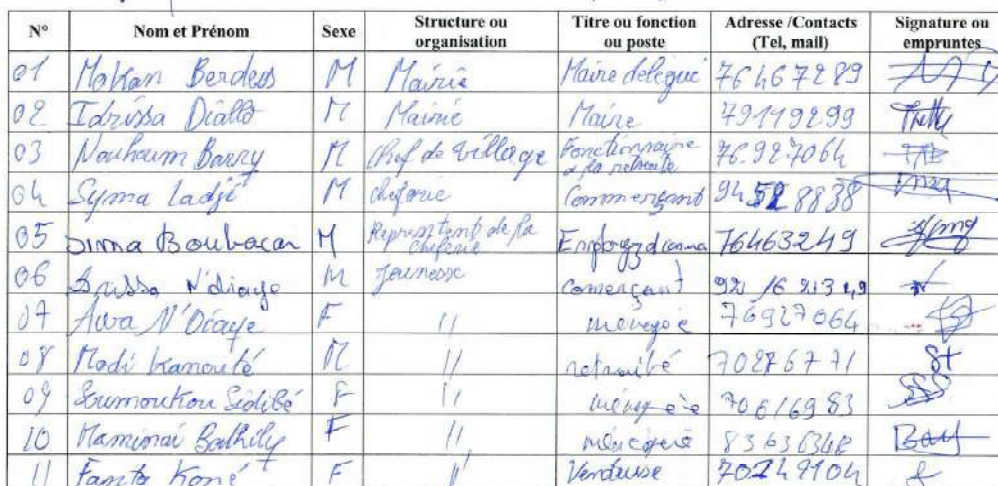 N° Nom et Prénom Sexe Structure ou organisation Titre ou fonction ou poste Adresse /Contacts (Tel, mail) Signature ou empruntes
01 Makan Berdess M Mairie Maire délégué 76467289
02 Idrissa Diallo M Mairie Maire 79119299
03 Nouhoum Barry M Chef de village Fonctionnaire à la retraite 76927064
04 Syma Ladji M cheferie Commerçant 94528838
05 Sima Boubacar M Representent de la cheferie 76463249
06 Drissa N'diaye M Jeunesse Comerçant
07 Awa N'Diaye F // 76927064
08 Modi Kanouté M // retraité 70276771
09 Soumoutou Sidibé F // 70616983
10 Bathily F // 83636348 Bay
11 Fanta Koné F // Venduse 70249104